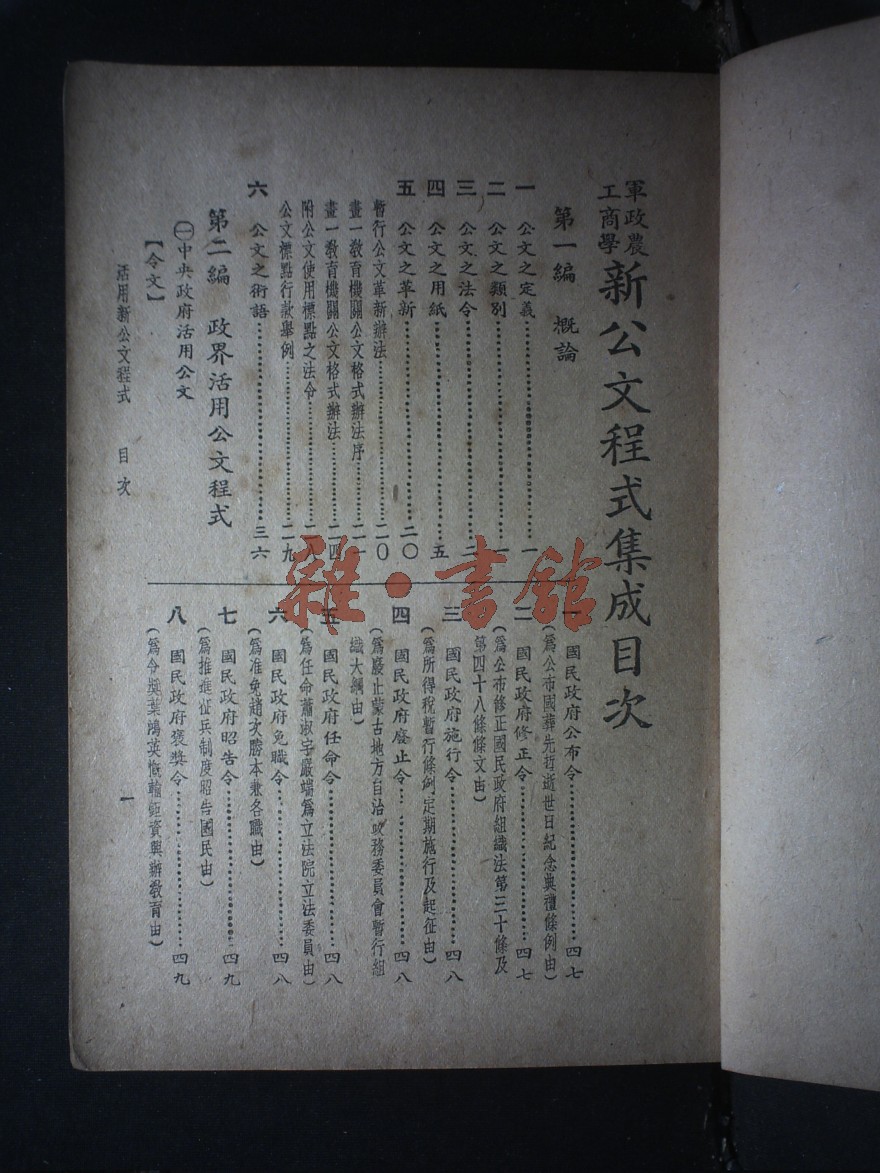 軍政農
工商學
新公文程式集成目次
第一編 概論
一 公文之定義 一
二 公文之類別 一
三 公文之法令 二
四 公文之用紙 五
五 公文之革新 二〇
暫行公文革新辦法 二〇
畫一敎育機關公文格式辦法序 二一
畫一敎育機關公文格式辦法 二四
附公文使用標點之法令 二八
公文標點行款舉例 二九
六 公文之術語 三六
第二編 政界活用公文程式
㊀中央政府活用公文
【令文】
一 國民政府公布令 四七
(爲公布國葬先哲逝世日紀念典禮條例由)
二 國民政府修正令 四七
(爲公布修正國民政府組織法第三十條及
第四十八條條文由)
三 國民政府施行令 四八
(爲所得稅暫行條例定期施行及起征由)
四 國民政府廢止令 四八
(爲廢止蒙古地方自治政務委員會暫行組
織大綱由)
五 國民政府任命令 四八
(爲任命蕭淑宇嚴端爲立法院立法委員由)
六 國民政府免職令 四八
(爲准免趙次勝本兼各職由)
七 國民政府昭告令 四九
(爲推進征兵制度昭告國民由)
八 國民政府褒獎令 四九
(爲令獎葉鴻英慨輸鉅資興辦敎育由)
活用新公文程式 目次
一
雜·書館